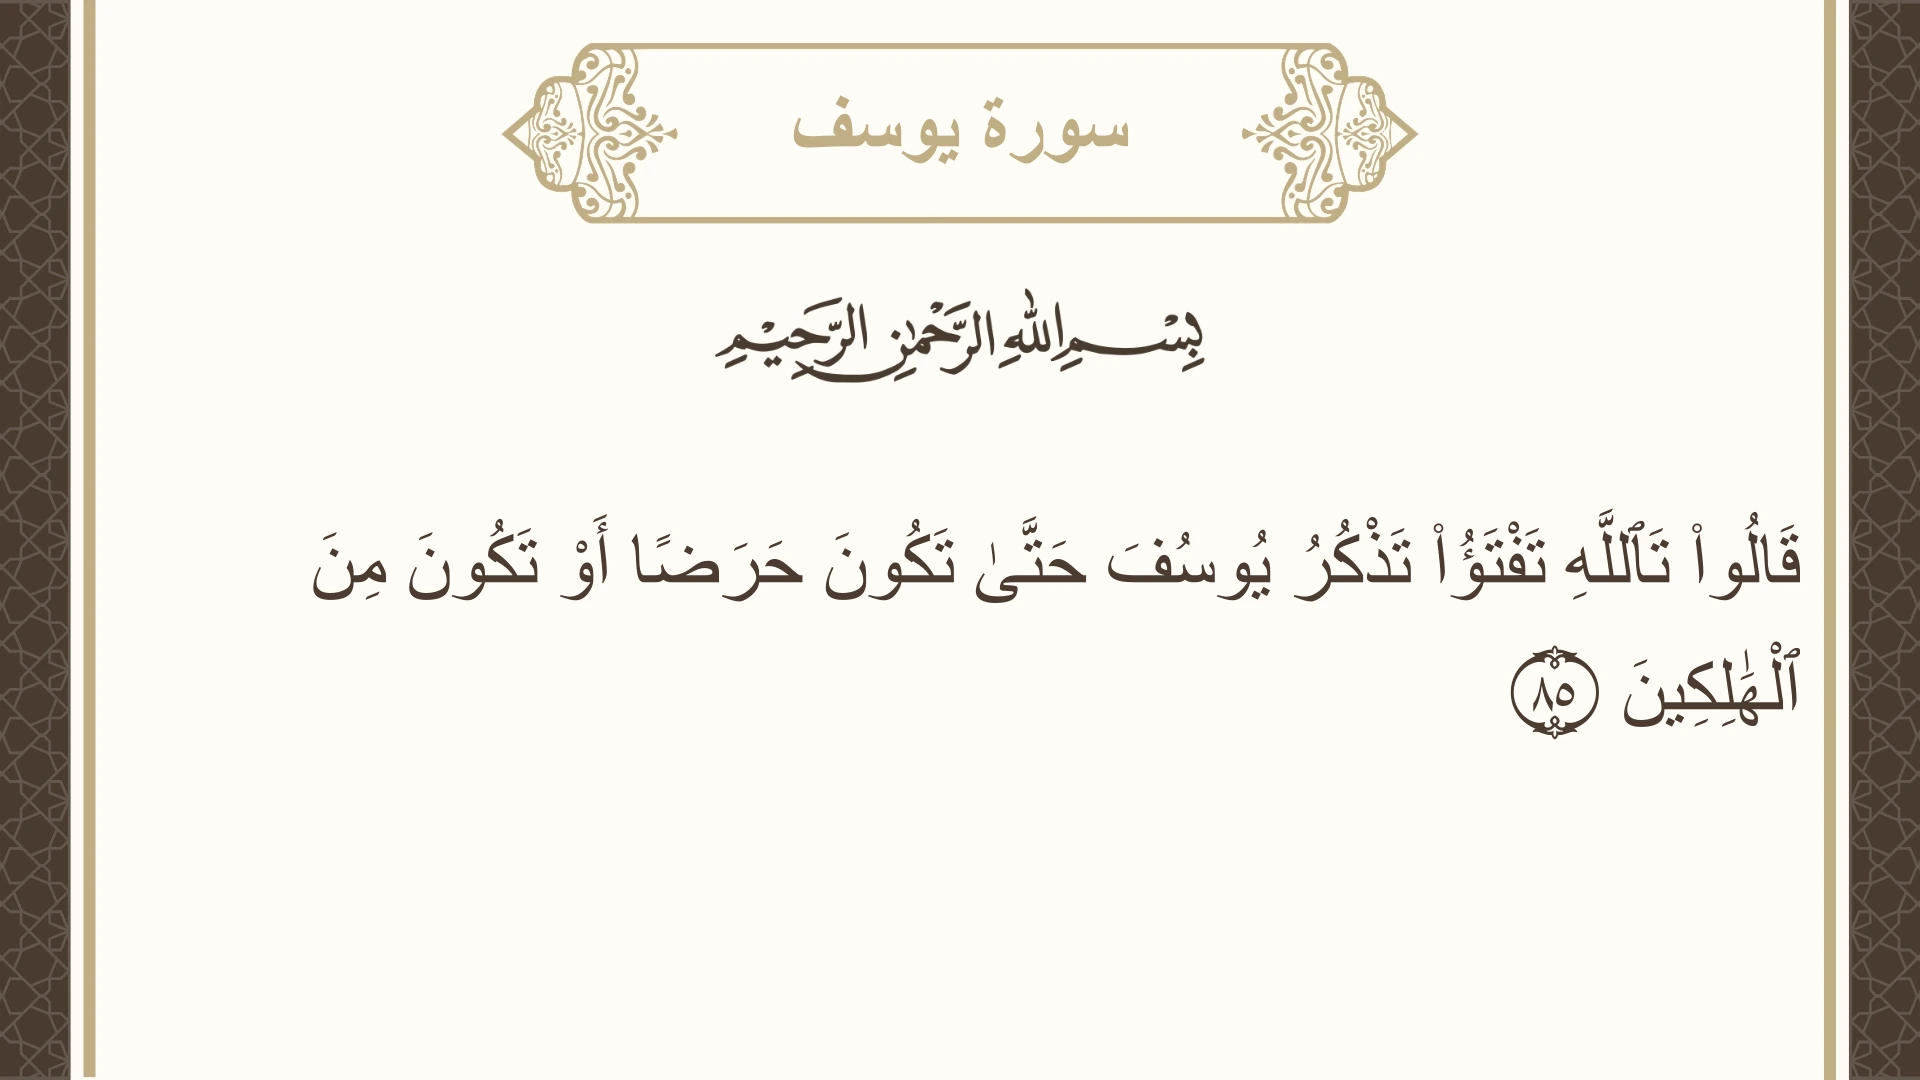 سورة يوسف
بِسْمِ اللهِ الرَّحْمٰنِ الرَّحِيْمِ
قَالُوا۟ تَٱللَّهِ تَفْتَؤُا۟ تَذْكُرُ يُوسُفَ حَتَّىٰ تَكُونَ حَرَضًا أَوْ تَكُونَ مِنَ
ٱلْهَٰلِكِينَ ٨٥